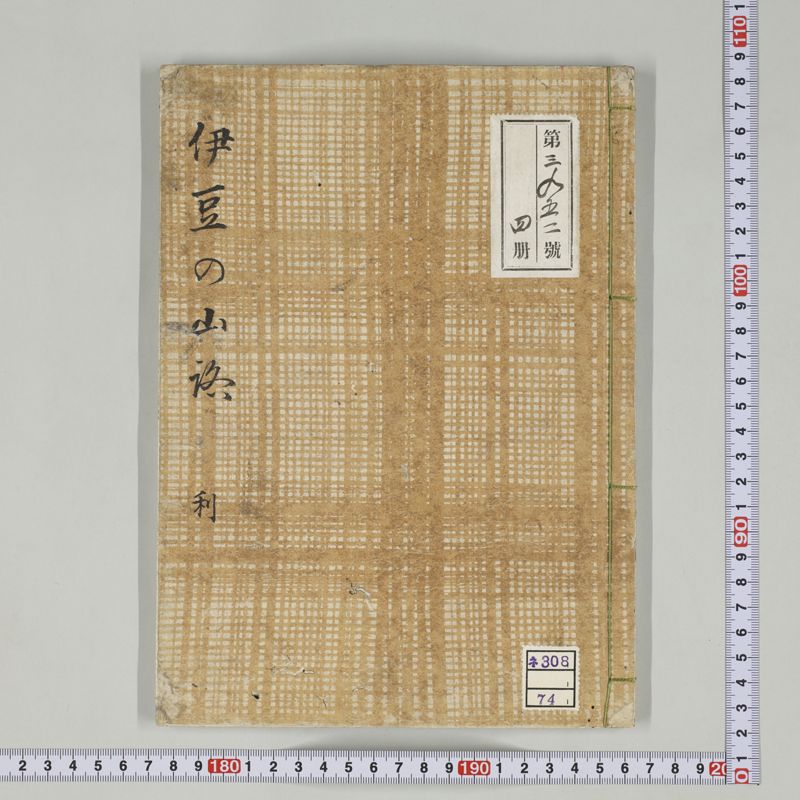 伊豆の山路
利
第三五二號
四册
ネ308
1
74
1
2 3 4 5 6 7 8 9 180 1 2 3 4 5 6 7 8 9 190 1 2 3 4 5 6 7 8 9 20
0 1 2 3 4 5 6 7 8 9 90 1 2 3 4 5 6 7 8 9 100 1 2 3 4 5 6 7 8 9 110 1